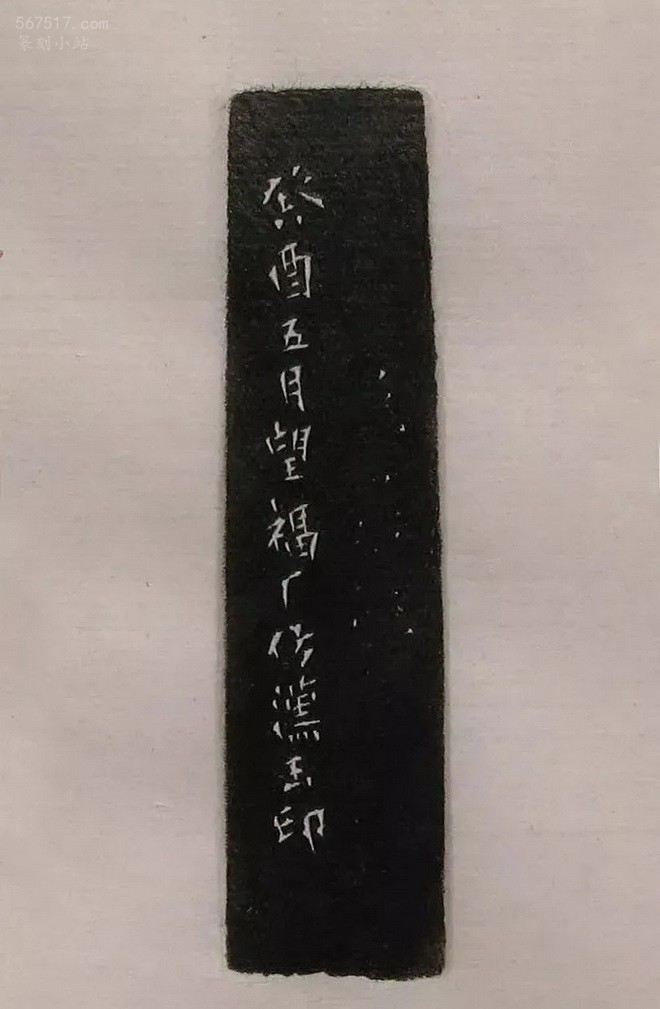 567517.com
篆刻小站
癸酉五月望福厂仿漢玉印